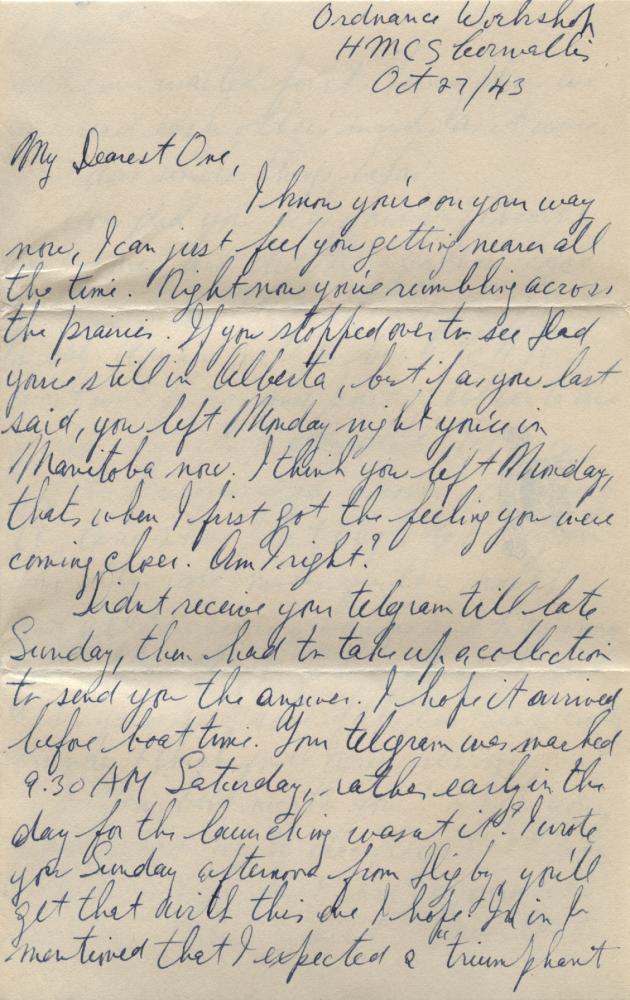 Ordnance Workshop
HMCS Cornwallis
Oct 27/43
My Dearest One,
I know you're on your way
now, I can just feel you getting nearer all
the time. Right now you're rumbling across
the prairies. If you stopped over to see Dad
you're still in Alberta, but if as you last
said, you left Monday night you're in
Manitoba now. I think you left Monday,
thats when I first got the feeling you were
coming closer. Am I right?
Didnt receive your telgram till late
Sunday, then had to take up a collection
to send you the answer. I hope it arrived
before boat time. Your telgram was marked
9.30 AM Saturday, rather early in the
day for the launching wasnt it? I wrote
you Sunday afternoon from Digby, you'll
get that with this one I hope. In
mentioned that I expected a "triumphant